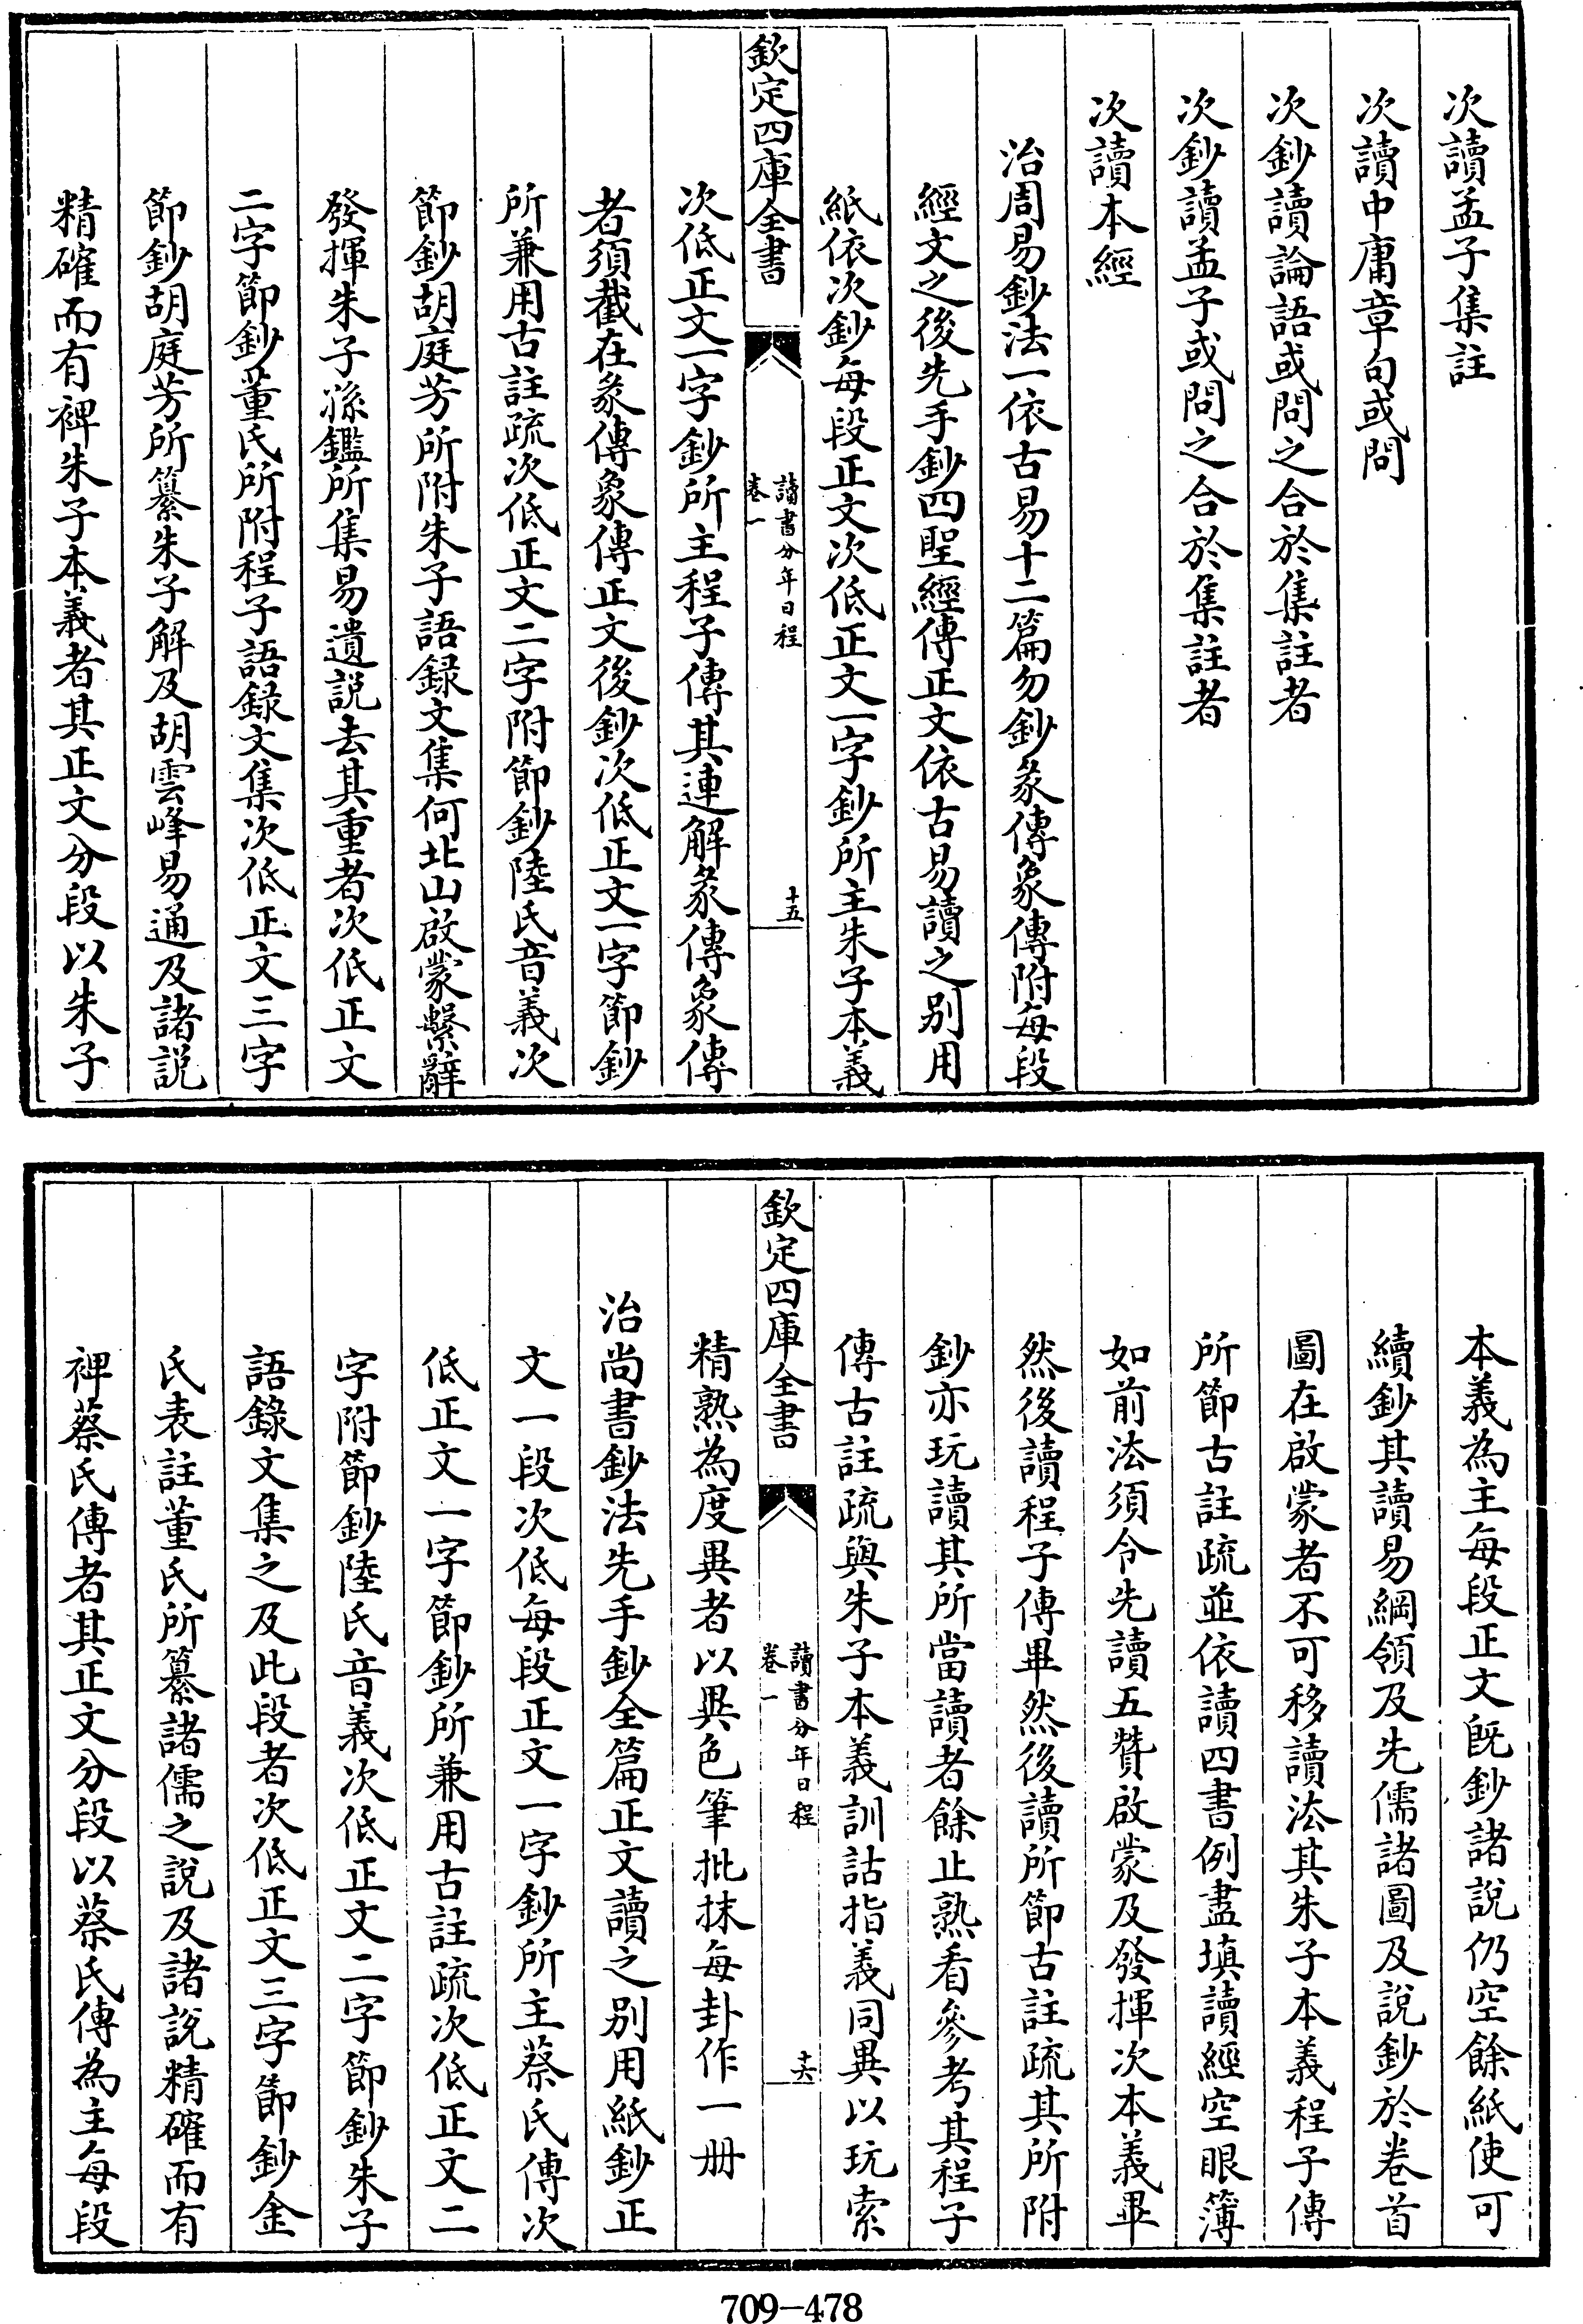 次讀孟子集註
次讀中庸章句或問
次鈔讀論語或問之合於集註者
次鈔讀孟子或問之合於集註者
次讀本經
治周易鈔法一依古易十二篇勿鈔彖傳象傳附每段
經文之後先手鈔四聖經傳正文依古易讀之别用
紙依次鈔每段正文次低正文一字鈔所主朱子本義
欽定四庫全書
讀書分年日程
卷一
十五
次低正文一字鈔所主程子傳其連解彖傳象傳
者須截在彖傳象傳正文後鈔次低正文一字節鈔
所兼用古註疏次低正文二字附節鈔陸氏音義次
節鈔胡庭芳所附朱子語録文集何北山啟蒙繫辭
發揮朱子孫鑑所集易遺説去其重者次低正文
二字節鈔董氏所附程子語録文集次低正文三字
節鈔胡庭芳所纂朱子解及胡雲峰易通及諸説
精確而有裨朱子本義者其正文分段以朱子
本義為主每段正文既鈔諸説仍空餘紙使可
續鈔其讀易綱領及先儒諸圖及説鈔於卷首
圖在啟蒙者不可移讀法其朱子本義程子傳
所節古註疏並依讀四書例盡填讀經空眼簿
如前法須令先讀五贊啟蒙及發揮次本義畢
然後讀程子傳畢然後讀所節古註疏其所附
鈔亦玩讀其所當讀者餘止熟看參考其程子
傳古註疏與朱子本義訓詁指義同異以玩索
欽定四庫全書
讀書分年日程
卷一
十六
精熟為度異者以異色筆批抹每卦作一册
治尚書鈔法先手鈔全篇正文讀之别用紙鈔正
文一段次低每段正文一字鈔所主蔡氏傳次
低正文一字節鈔所兼用古註疏次低正文二
字附節鈔陸氏音義次低正文二字節鈔朱子
語錄文集之及此段者次低正文三字節鈔金
氏表註董氏所纂諸儒之説及諸説精確而有
裨蔡氏傳者其正文分段以蔡氏傳為主每段
709-478